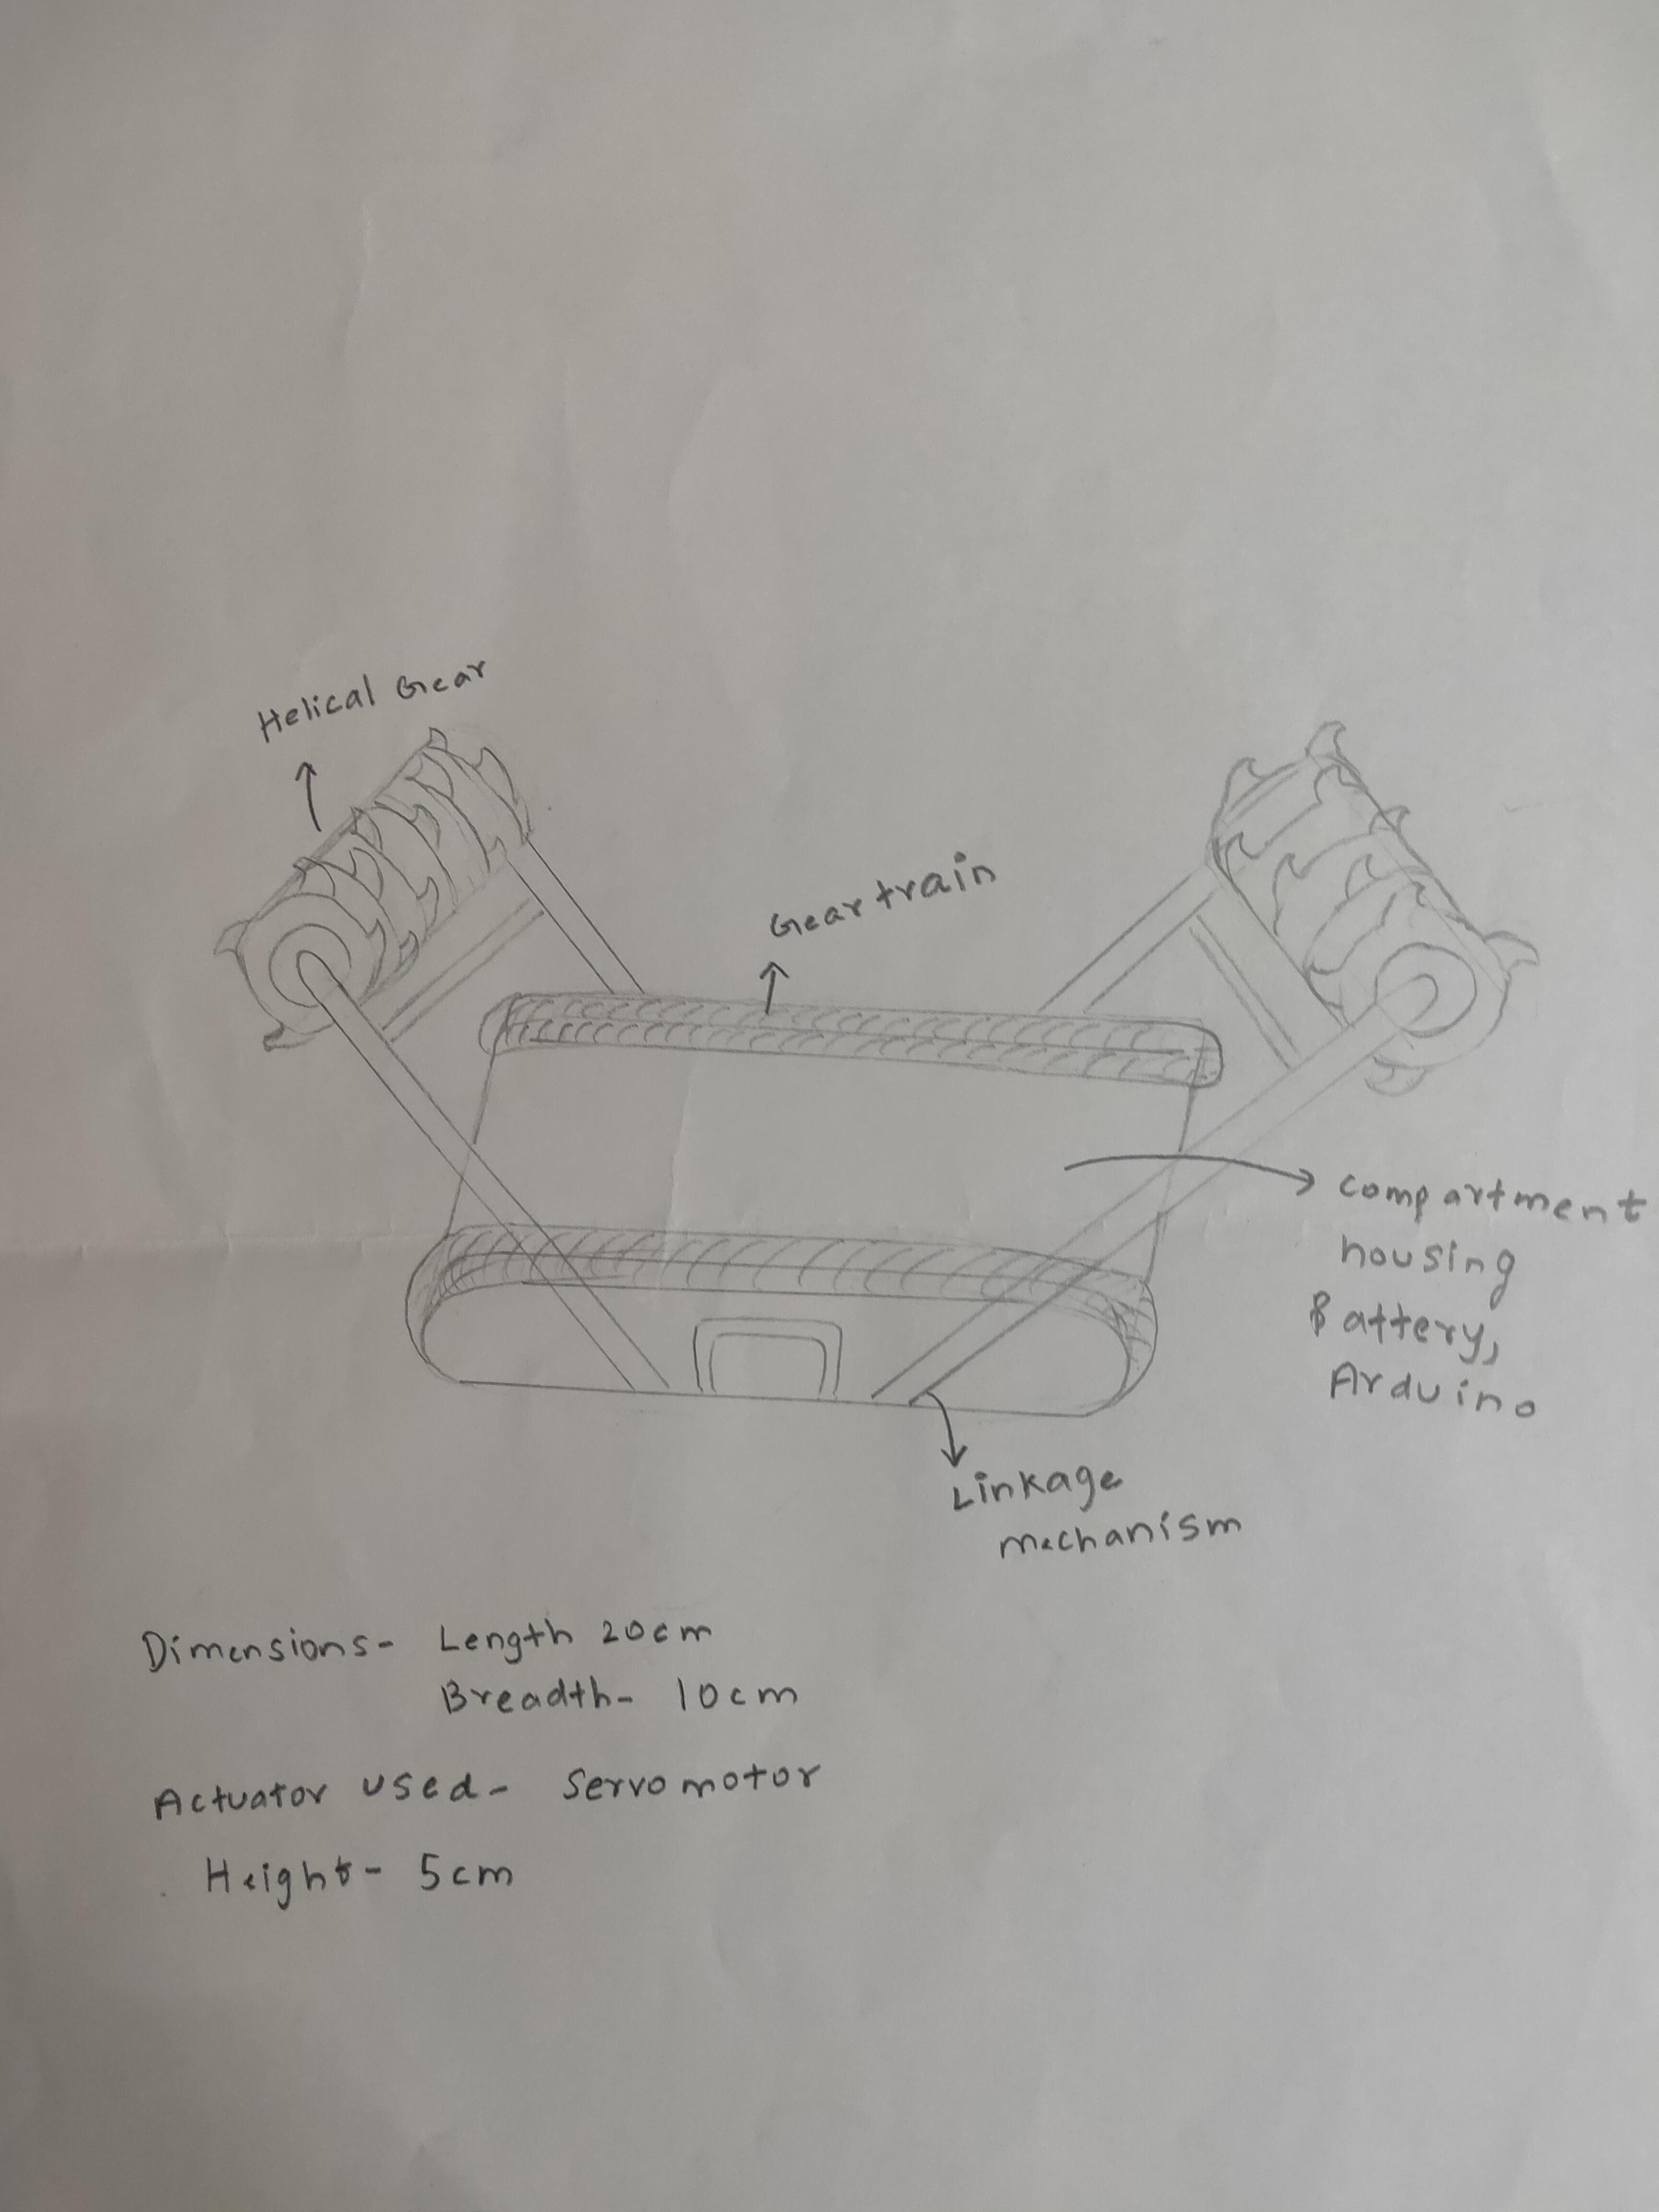 Helical Gear
Gear train
compartment
housing
Battery,
Arduino
Linkage
mechanism
Dimensions- Length 20cm
Breadth- 10cm
Actuator used- Servomotor
Height- 5cm